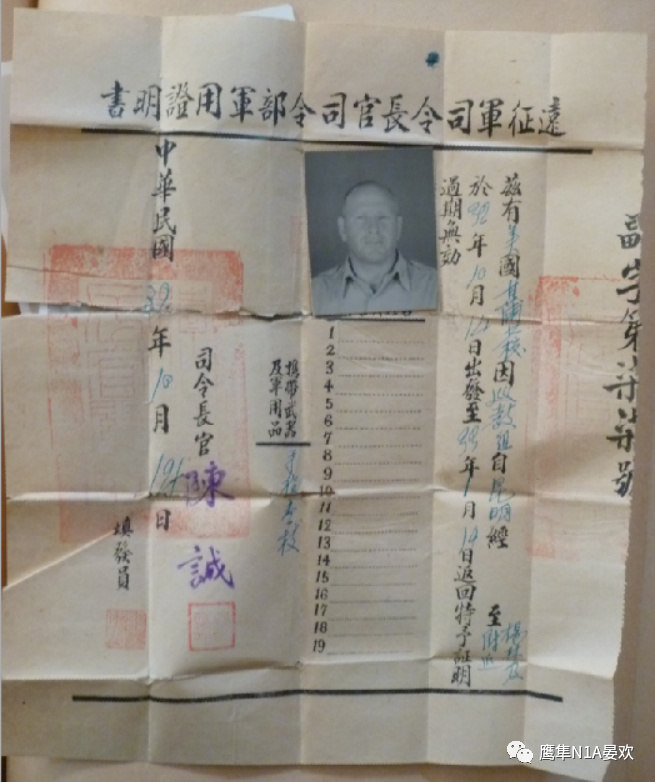 遠征軍司令長官司令部軍用證明書
副字第柒柒號
茲有美國因自昆明經至附近
於32年10月日出發至33年1月14日返回特予証明
過期無効
1
2
3
4
5
6
7
8
9
10
11
12
13
14
15
16
17
18
19
携帶武器
及軍用品
手槍壹枝
司令長官陳誠
中華民國32年10月日
填發員
鹰隼N1A晏欢